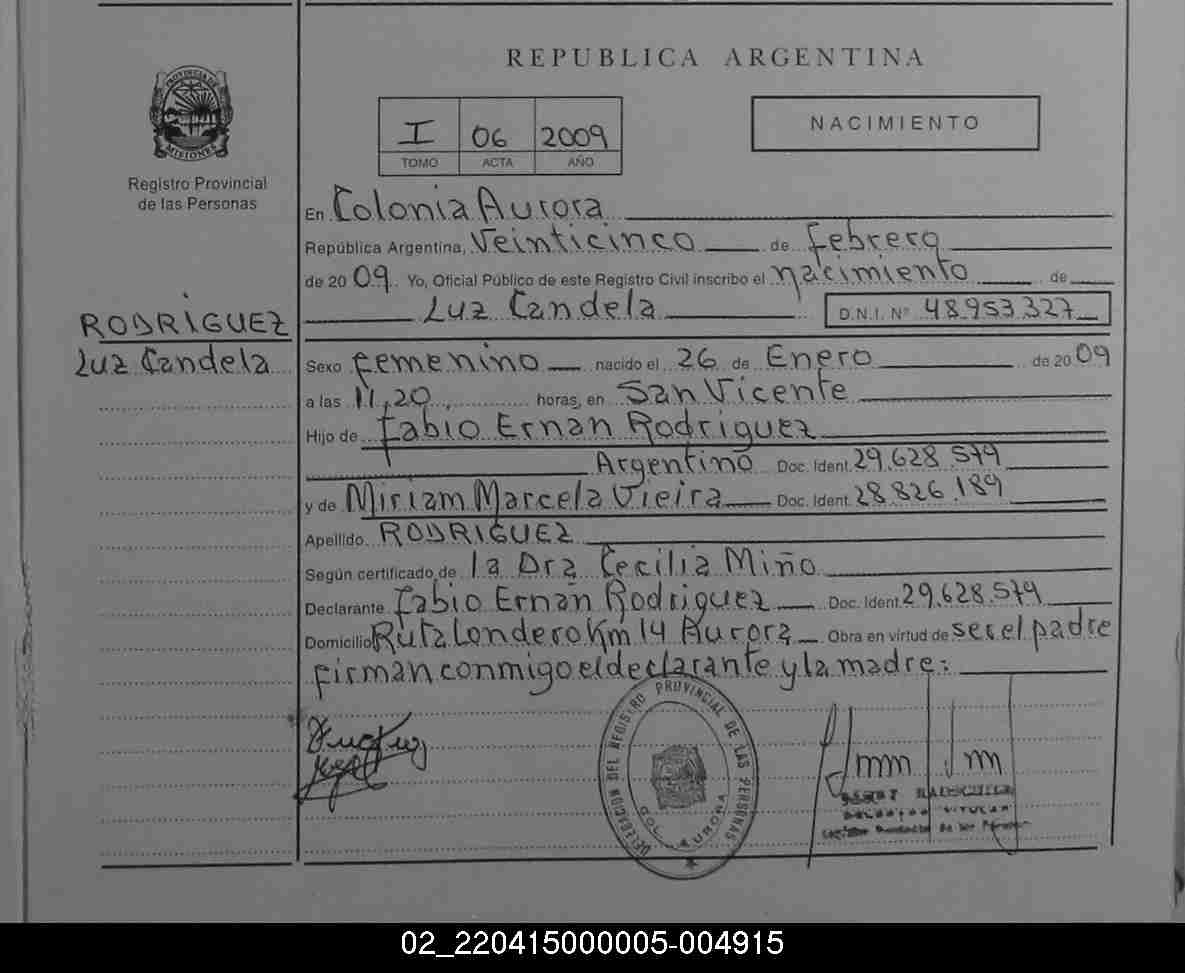 REPUBLICA ARGENTINA
PROVINCIA DE
MISIONES
Registro Provincial
de las Personas
I 06 2009
TOMO ACTA AÑO
NACIMIENTO
En Colonia Aurora
República Argentina, Veinticinco de febrero
de 2009. Yo, Oficial Público de este Registro Civil inscribo el nacimiento de
Luz Candela D.N.I. Nº 48.953.327
RODRIGUEZ
Luz Candela
Sexo femenino nacido el 26 de Enero de 2009
a las 11,20 horas, en San Vicente
Hijo de Fabio Ernan Rodriguez
Argentino Doc. Ident. 29.628.579
y de Miriam Marcela Vieira Doc. Ident. 28.826.189
Apellido RODRIGUEZ
Según certificado de la Dra Cecilia Miño
Declarante Fabio Ernan Rodriguez Doc. Ident. 29.628.579
Domicilio Ruta Londero Km 14 Aurora Obra en virtud de ser el padre
firman conmigo el declarante y la madre:
DELEGACION DEL REGISTRO PROVINCIAL DE LAS PERSONAS
COL. AURORA
02_220415000005-004915